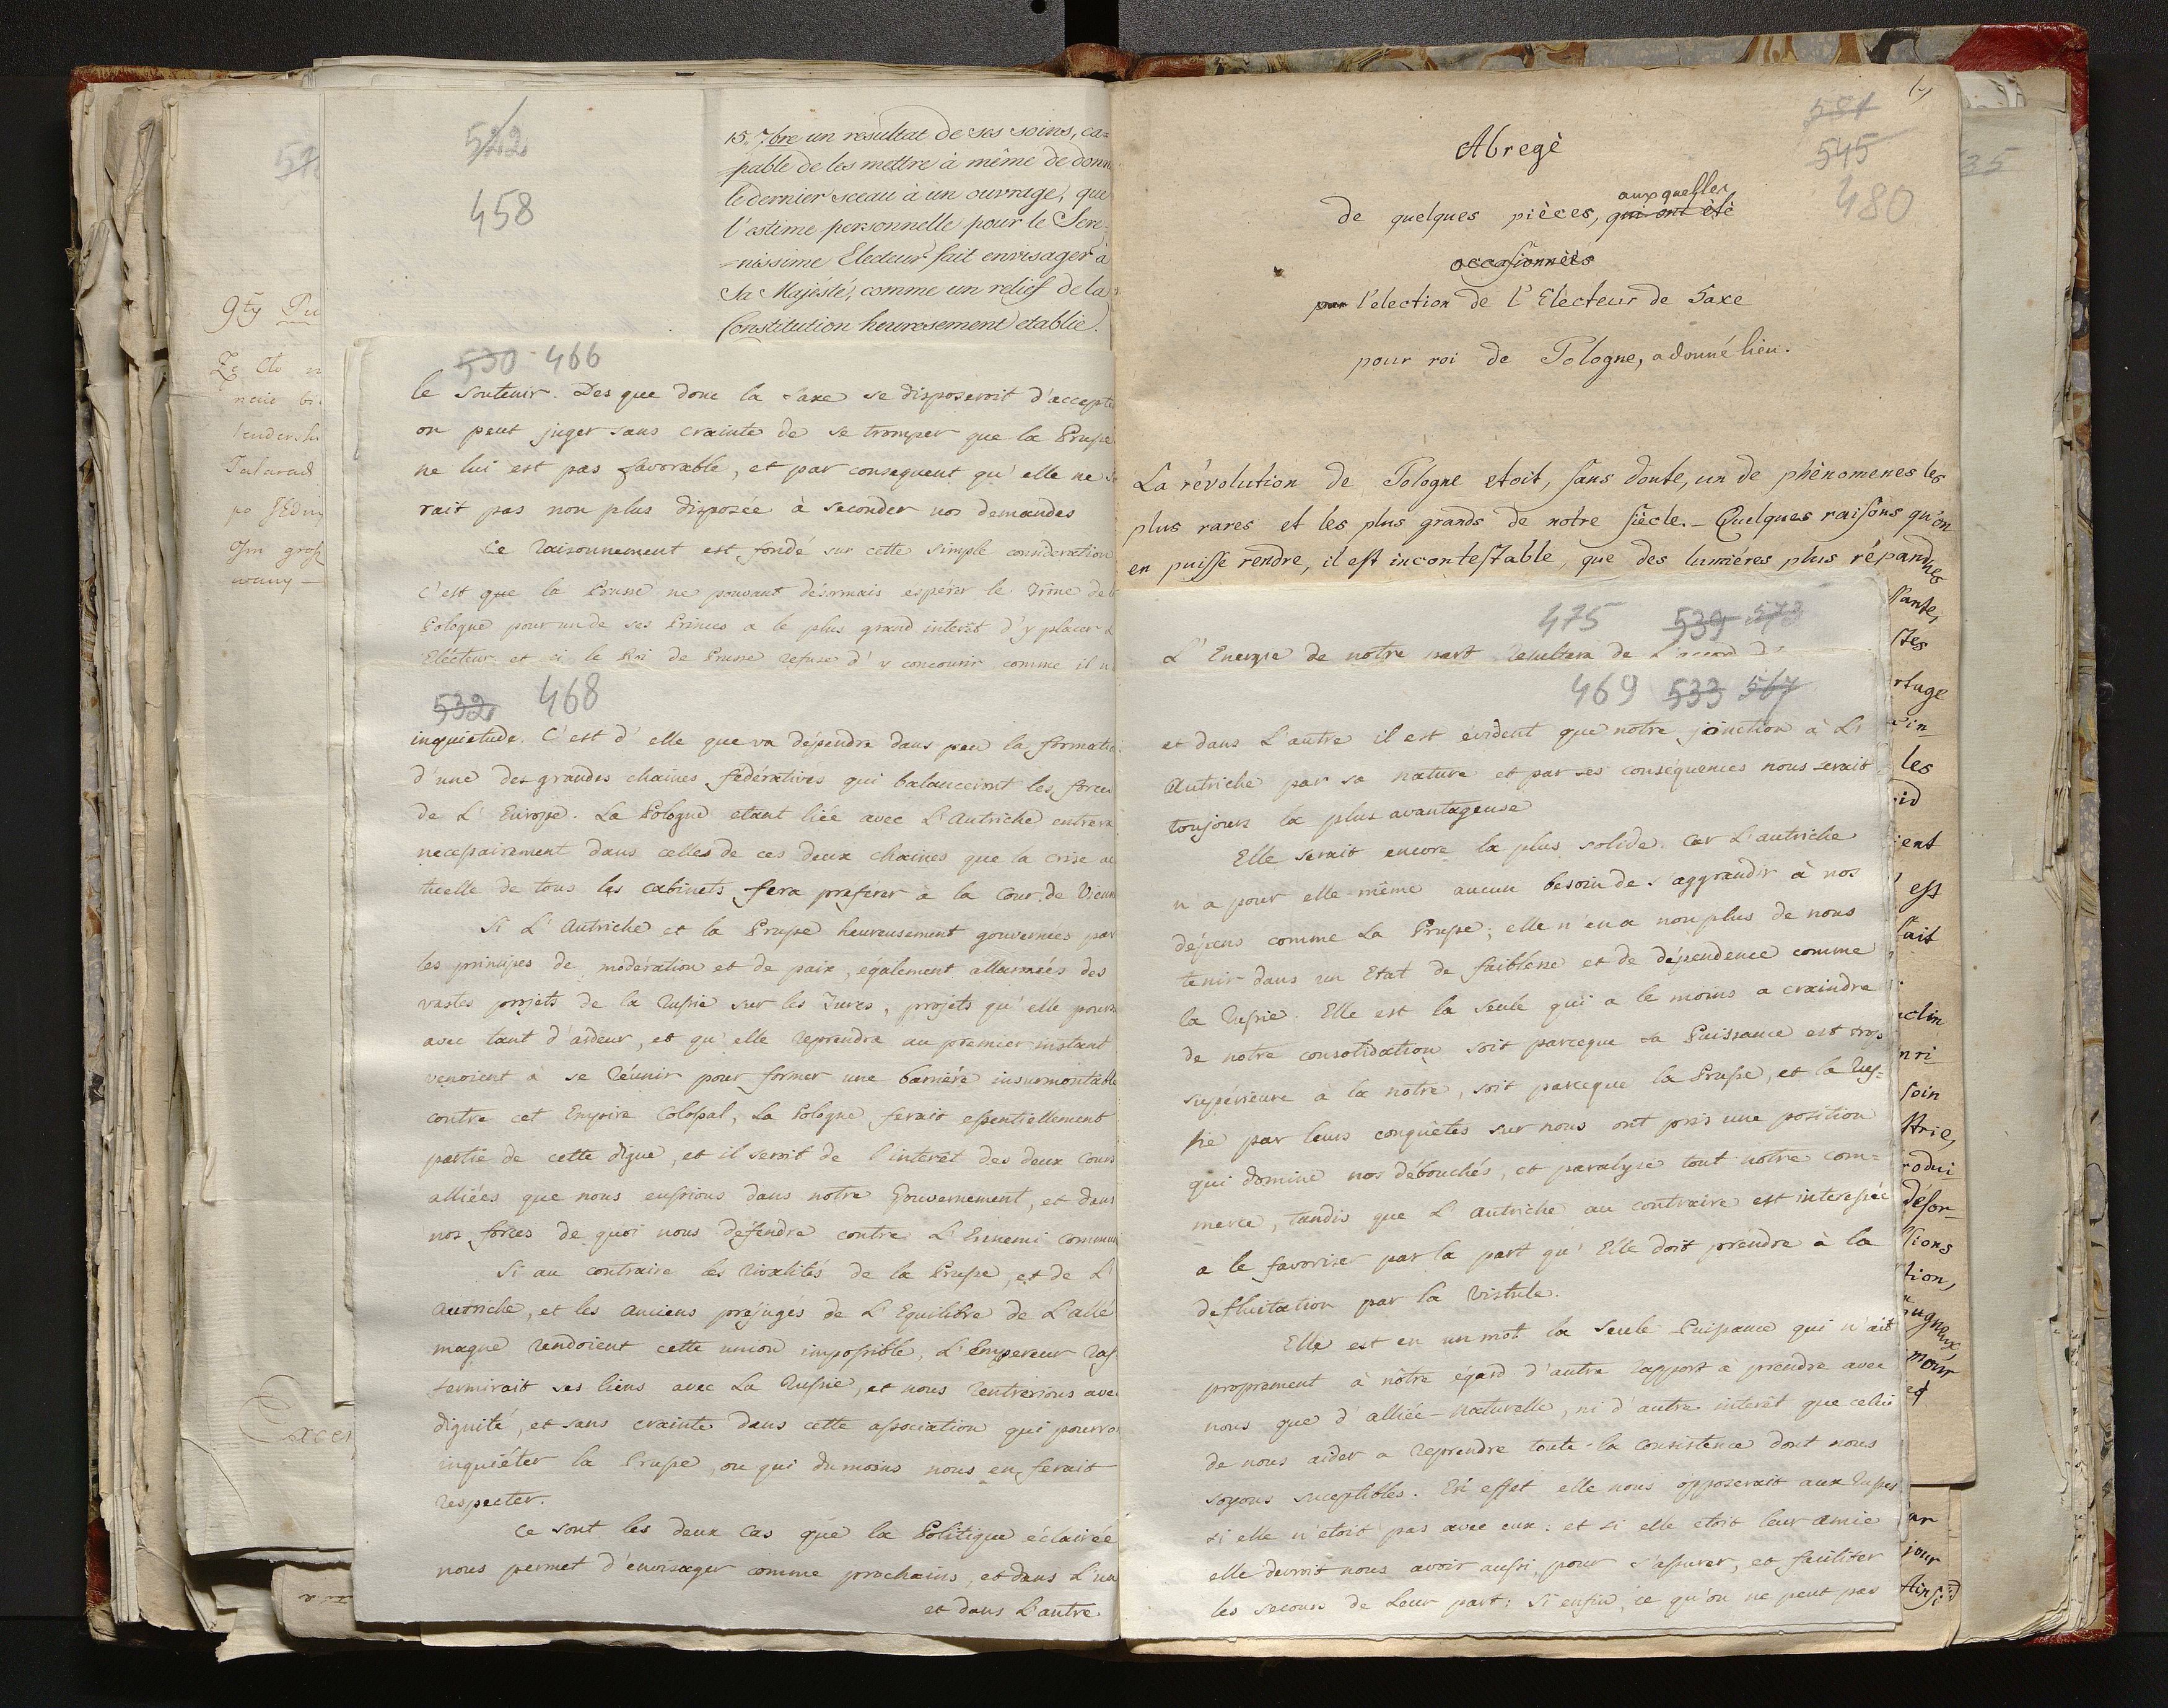 522
458
15. 7bre un résultat de ses soins, ca=
pable de les mettre à même de donn
le dernier sceau à un ouvrage, que
l'estime personnelle pour le Sere=
nissime Electeur fait envisager à
Sa Majesté, comme un relief de la
Constitution heureusement etablie.
530 466
le soutenir. Des que donc la Saxe se disposeroit d'accepte
on peut juger sans crainte de se tromper que la Prusse
ne lui est pas favorable, et par consequent qu'elle ne s
rait pas non plus disposée à seconder nos demandes
Ce raisonnement est fondé sur cette simple consideration
C'est que la Prusse ne pouvant désormais espérer le trône de
Pologne pour un de ses Princes a le plus grand interêt d'y placer
Electeur et si le Roi de Prusse refuse d'y concourir comme il n
532 468
inquietude. C'est d'elle que va dépendre dans peu la formatio
d'une des grandes chaines fédératives qui balanceront les forces
de L'Europe. La Pologne etant liée avec L'Autriche entrera
necessairement dans celles de ces deux chaines que la crise ac
tuelle de tous les cabinets fera préferer à la Cour de Vienne
Si L'Autriche et la Prusse heureusement gouvernées par
les principes de modération et de paix, également allarmées des
vastes projets de la Russie sur les Turcs, projets qu'elle poursu
avec tant d'ardeur, et qu'elle reprendra au premier instant
venoient à se réunir pour former une barrière insurmontable
contre cet Empire Colossal, La Pologne ferait essentiellement
partie de cette digue, et il seroit de l'interêt des deux Cours
alliées que nous eussions dans notre Gouvernement, et dans
nos forces de quoi nous défendre contre L'Ennemi commun
Si au contraire les rivalités de la Prusse, et de L'
Autriche, et les anciens préjugés de L'Equilibre de L'alle
magne rendoient cette union impossible, L'Empereur raf
fermirait ses liens avec La Russie, et nous rentrerions avec
dignité, et sans crainte dans cette association qui pourro
inquiéter la Prusse, ou qui du moins nous en ferait
respecter.
Ce sont les deux Cas que la Politique éclairée
nous permet d'envisager comme prochains, et dans L'un
et dans L'autre
581
545
480
Abregè
de quelques pièces, qui ont été auxquelles
occasionnées
par l'election de l'Electeur de Saxe
pour roi de Pologne, a donné lieu.
La révolution de Pologne etoit, sans doute, un de phènomenes les
plus rares et les plus grands de notre siècle. - Quelques raisons qu'on
en puisse rendre, il est incontestable, que des lumières plus répandues
475 539 573
L'Energie de notre part resultera de L'accord de
469 533 567
et dans L'autre il est évident que notre jonction à L'
Autriche par sa nature et par ses conséquences nous serait
toujours la plus avantageuse
Elle serait encore la plus solide. Car L'autriche
n'a pour elle-même aucun besoin de s'aggrandir à nos
dépens comme La Prusse; elle n'en a non plus de nous
tenir dans un Etat de faiblesse et de dépendence comme
la Russie. Elle est la Seule qui a le moins a craindre
de notre consolidation soit parceque sa Puissance est trop
supérieure à la notre, soit parceque la Prusse, et la Rus=
sie par leurs conquêtes sur nous ont pris une position
qui domine nos débouchés, et paralyse tout notre com=
merce, tandis que L'autriche au contraire est interessée
a le favoriser par la part qu'Elle doit prendre à la
defluitation par la Vistule.
Elle est en un mot la Seule Puissance qui n'ait
proprement à nôtre égard d'autre rapport a prendre avec
nous que d'alliée-naturelle, ni d'autre interêt que celui
de nous aider a reprendre toute la consistence dont nous
soyons suceptibles. En effet elle nous opposerait aux Russes
si elle n'etoit pas avec eux: et si elle etoit leur amie
elle devroit nous avoir aussi, pour s'assurer, et faciliter
les secours de Leur part: Si enfin, ce qu'on ne peut pas